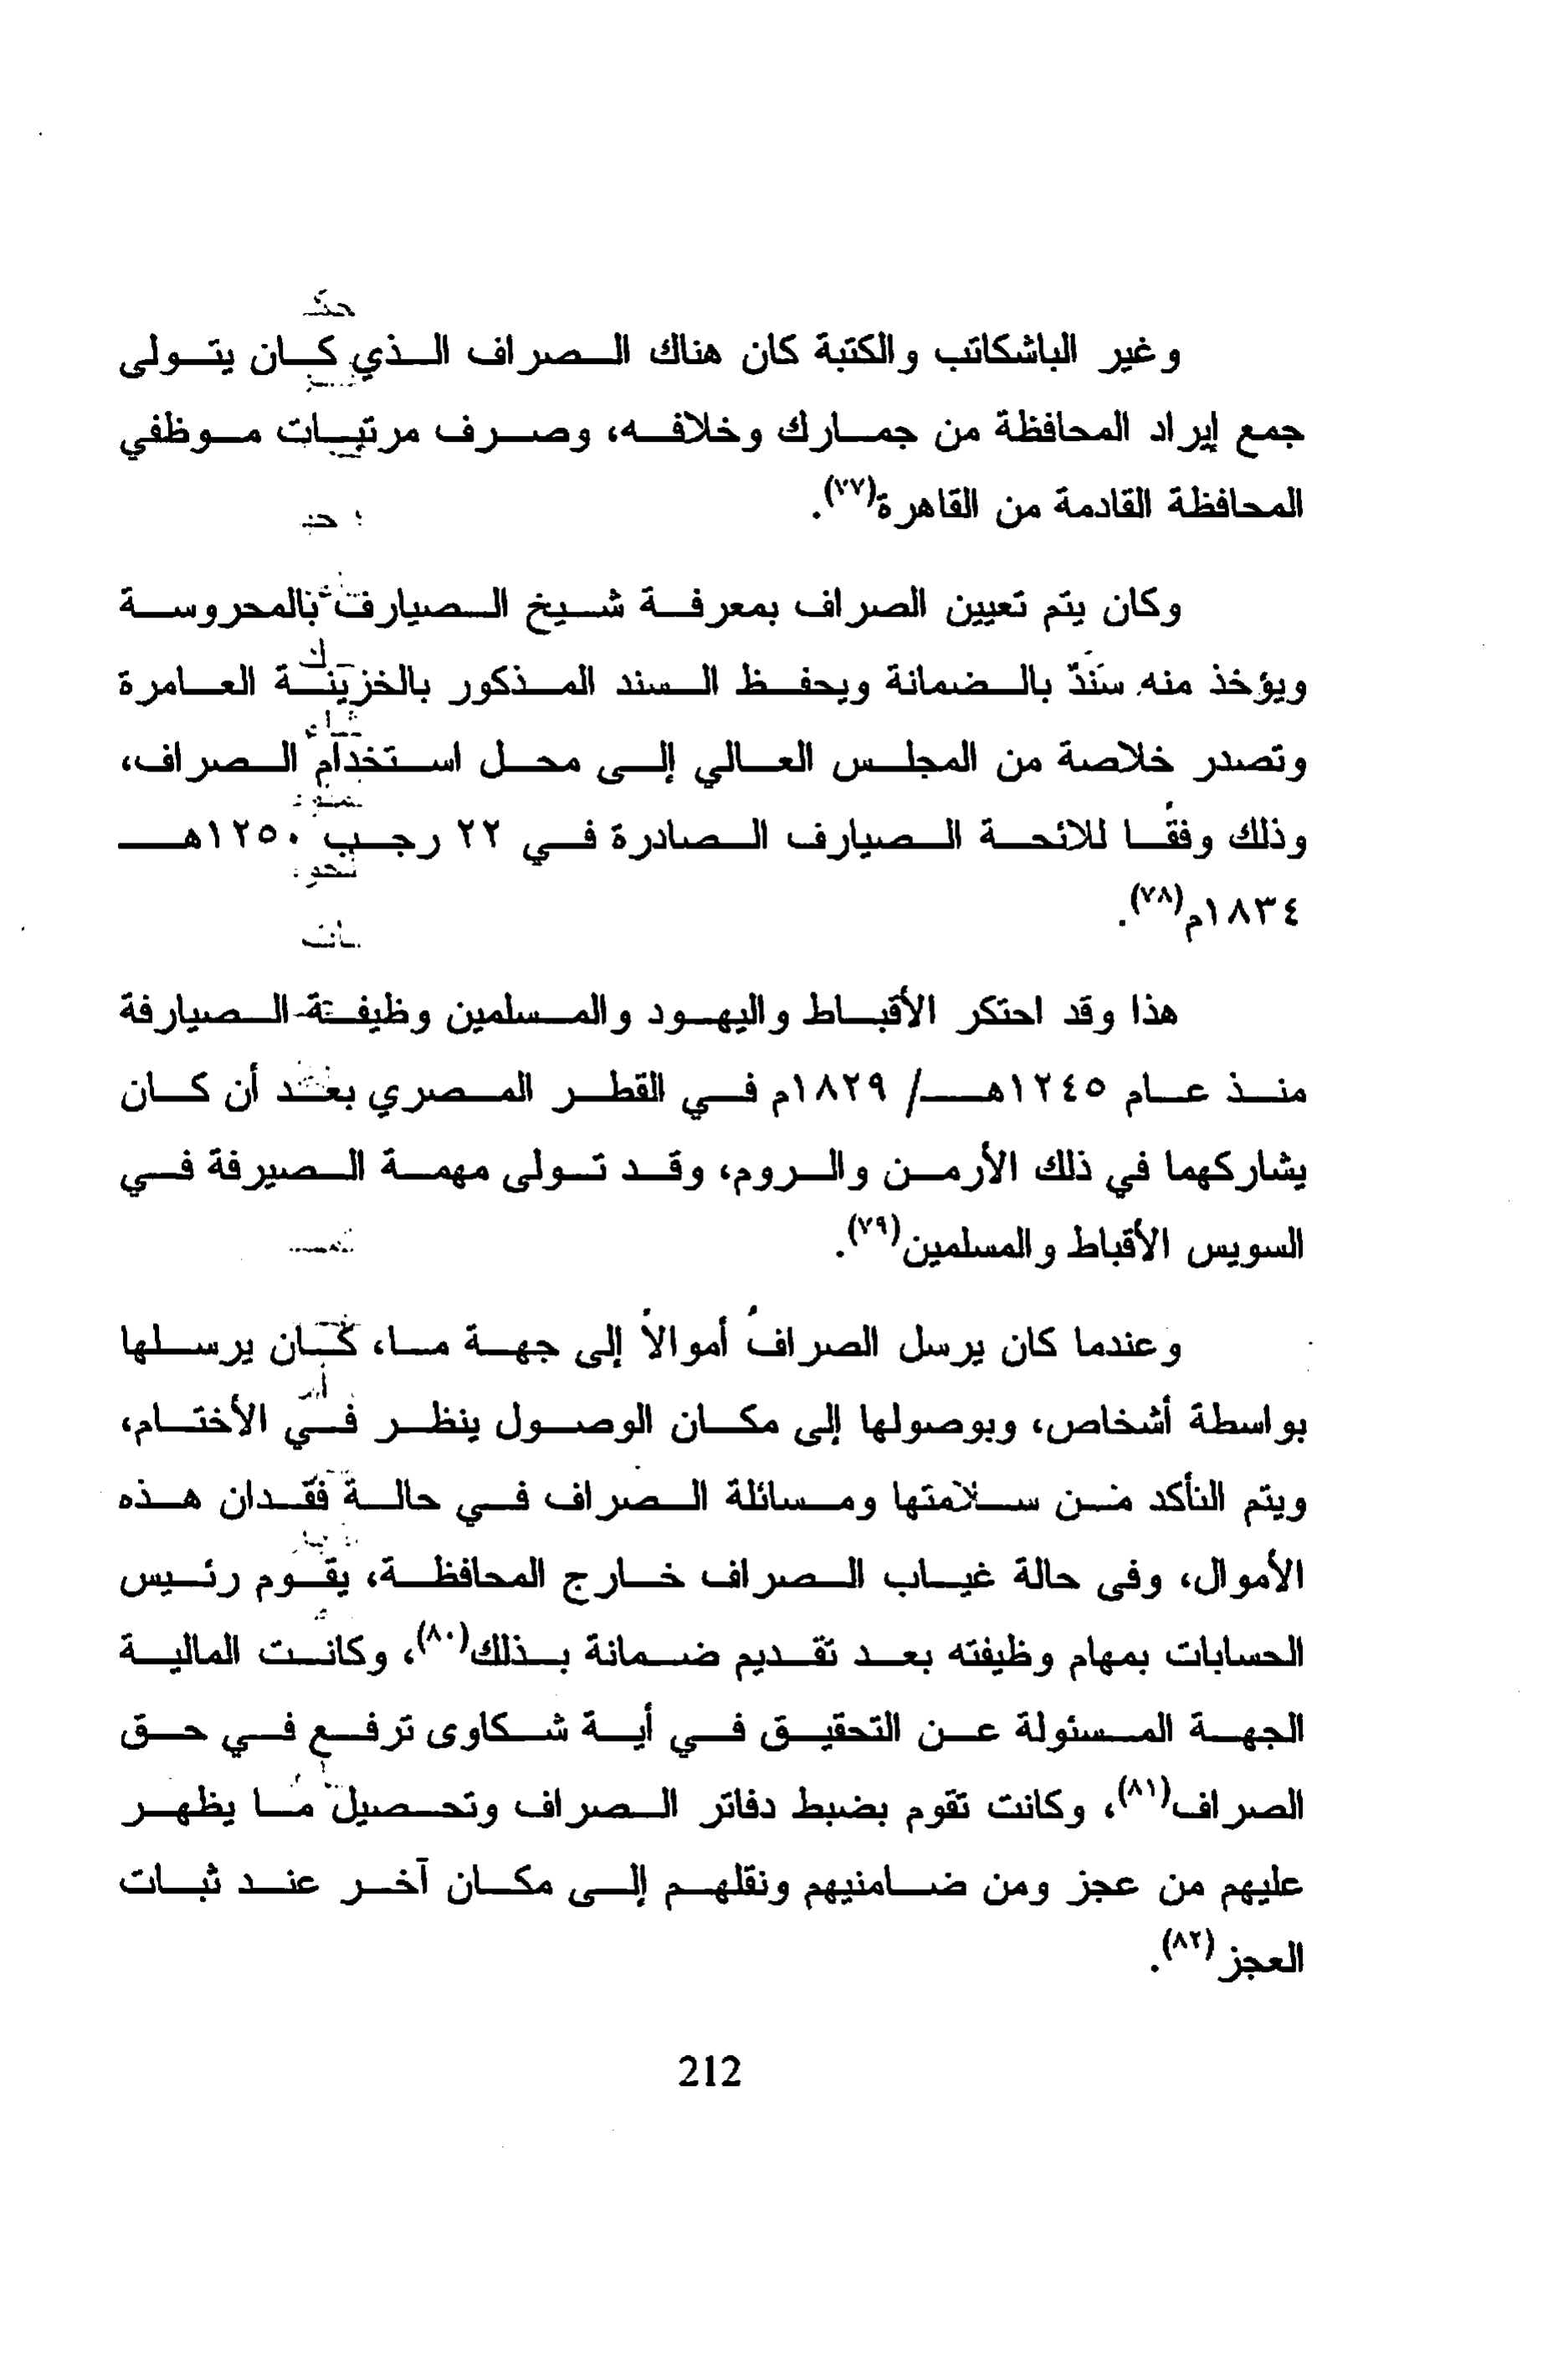 وغير الباشكاتب والكتبة كان هناك الصراف الذي كان يتولى
جمع إيراد المحافظة من جمارك وخلافه، وصرف مرتبات موظفي
المحافظة القادمة من القاهرة(٧٧).
وكان يتم تعيين الصراف بمعرفة شيخ الصيارف بالمحروسة
ويؤخذ منه سَنَدٌ بالضمانة ويحفظ السند المذكور بالخزينة العامرة
وتصدر خلاصة من المجلس العالي إلى محل استخدام الصراف،
وذلك وفقًا للائحة الصيارف الصادرة في ٢٢ رجب ١٢٥٠هـ
١٨٣٤م(٧٨).
هذا وقد احتكر الأقباط واليهود والمسلمين وظيفة الصيارفة
منذ عام ١٢٤٥هـ/ ١٨٢٩م في القطر المصري بعد أن كان
يشاركهما في ذلك الأرمن والروم، وقد تولى مهمة الصيرفة في
السويس الأقباط والمسلمين(٧٩).
وعندما كان يرسل الصرافُ أموالاً إلى جهة ما، كان يرسلها
بواسطة أشخاص، وبوصولها إلى مكان الوصول ينظر في الأختام،
ويتم التأكد من سلامتها ومسائلة الصراف في حالة فقدان هذه
الأموال، وفى حالة غياب الصراف خارج المحافظة، يقوم رئيس
الحسابات بمهام وظيفته بعد تقديم ضمانة بذلك(٨٠)، وكانت المالية
الجهة المسئولة عن التحقيق في أية شكاوى ترفع في حق
الصراف(٨١)، وكانت تقوم بضبط دفاتر الصراف وتحصيل ما يظهر
عليهم من عجز ومن ضامنيهم ونقلهم إلى مكان آخر عند ثبات
العجز(٨٢).
212